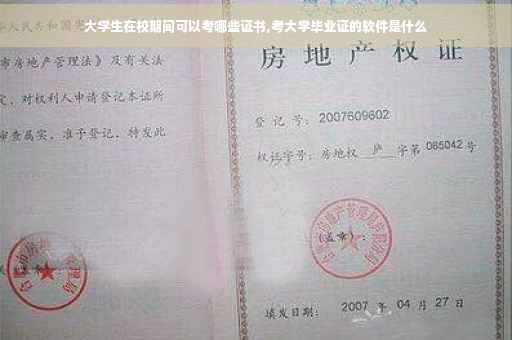 大学生在校期间可以考哪些证书,考大学毕业证的软件是什么
华人民共和国宪
市房地产管理法》及有关法
定，对权利人申请登记本证所
审查属实，准予登记，特发此
房地产权证
登记号：2007609602
权证字号：房地权 庐 字第 065042 号
(盖章)：
填发日期：2007 年 04 月 27 日